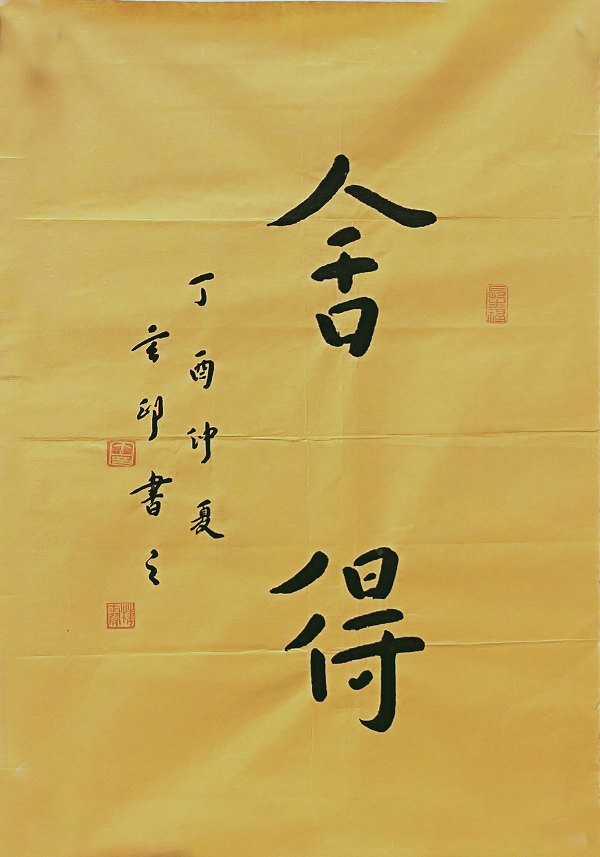 舍得
丁酉仲夏
玄印書之